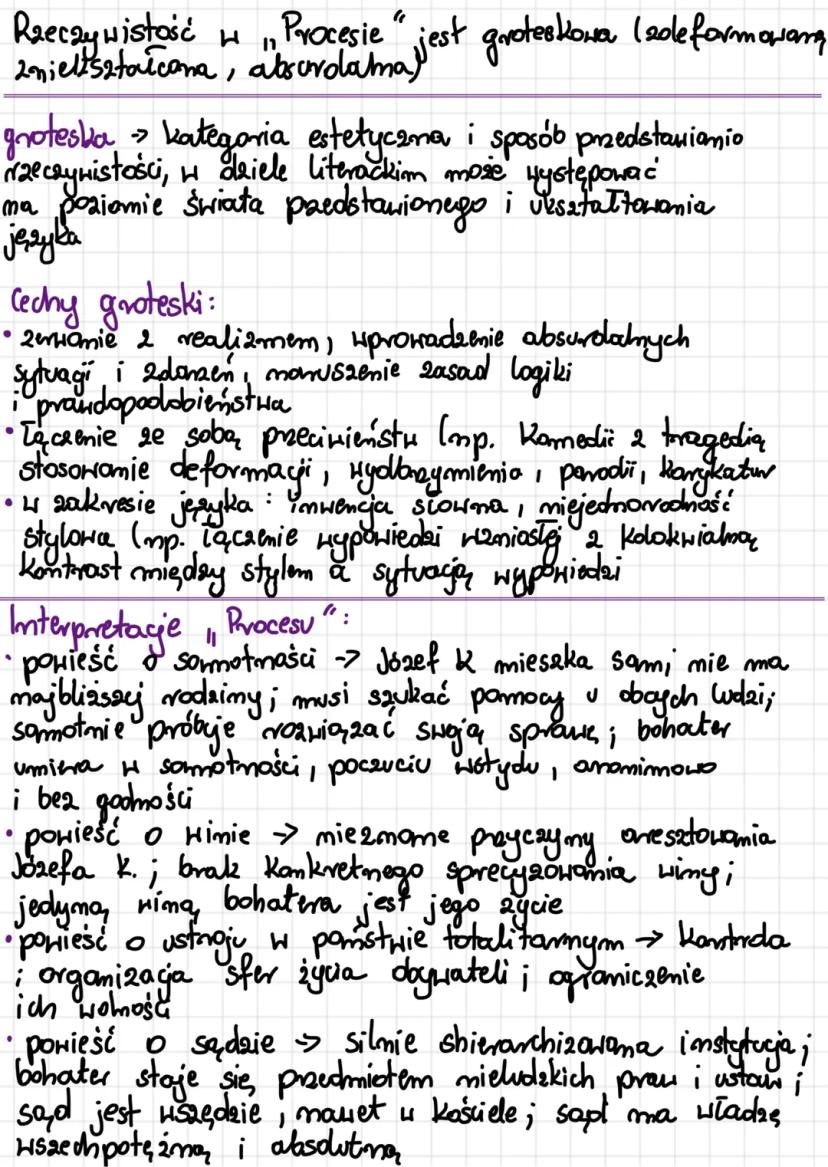 Rzeczywistość w „Procesie” jest groteskowa (zdeformowana,
zniekształcona, absurdalna)
groteska → kategoria estetyczna i sposób przedstawiania
rzeczywistości, w dziele literackim może występować
na poziomie świata przedstawionego i ukształtowania
języka
Cechy groteski:
• zerwanie z realizmem, wprowadzenie absurdalnych
sytuacji i zdarzeń, naruszenie zasad logiki
i prawdopodobieństwa
• łączenie ze sobą przeciwieństw (np. komedii z tragedią
stosowanie deformacji, wyolbrzymienia, parodii, karykatur
• w zakresie języka: inwencja słowna, niejednorodność
stylowa (np. łączenie wypowiedzi wzniosłej z kolokwialną
kontrast między stylem a sytuacją wypowiedzi
Interpretacje „Procesu”:
• powieść o samotności → Józef K mieszka sam; nie ma
najbliższej rodziny; musi szukać pomocy u obcych ludzi;
samotnie próbuje rozwiązać swoją sprawę; bohater
umiera w samotności, poczuciu wstydu, anonimowo
i bez godności
• powieść o winie → nieznane przyczyny aresztowania
Józefa K.; brak konkretnego sprecyzowania winy;
jedyną winą bohatera jest jego życie
• powieść o ustroju w państwie totalitarnym → kontrola
i organizacja sfer życia obywateli; ograniczenie
ich wolności
• powieść o sądzie → silnie shierarchizowana instytucja;
bohater staje się przedmiotem nieludzkich praw i ustaw;
sąd jest wszędzie, nawet w kościele; sąd ma władzę
wszechpotężną i absolutną